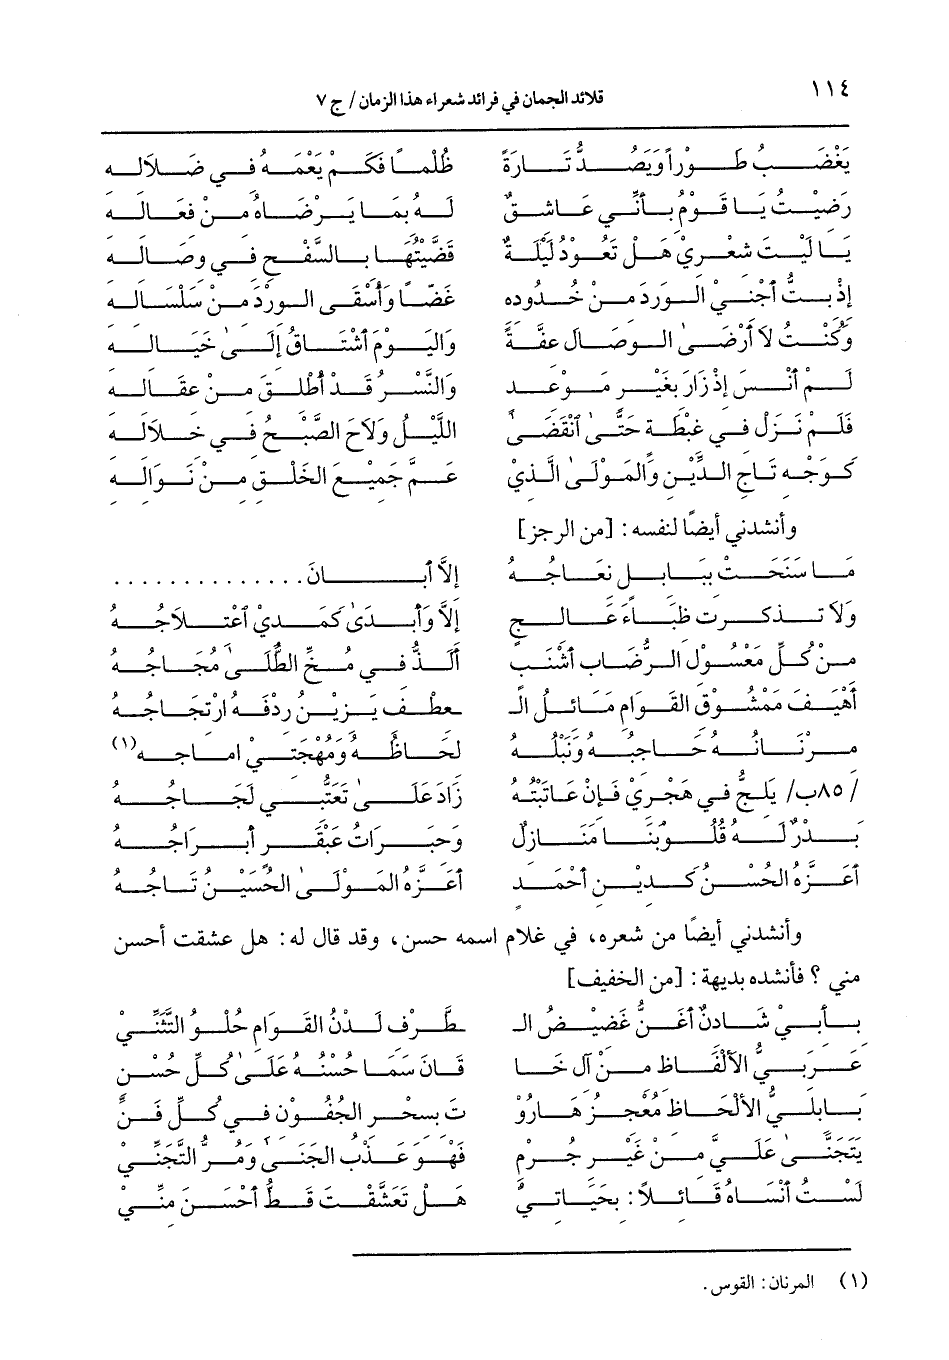 ١١٤
قلائد الجمان في فرائد شعراء هذا الزمان / ج ٧
يَغْضَبُ طَوْراً وَيَصُدُّ تَارَةً ظُلْمًا فَكَمْ يَعْمَهُ فِي ضَلَالِهِ
رَضِيْتُ يَا قَوْمُ بِأَنِّي عَاشِقٌ لَهُ بِمَا يَرْضَاهُ مِنْ فَعَالِهِ
يَا لَيْتَ شِعْرِيْ هَلْ تَعُوْدُ لَيْلَةٌ قَضَيْتُهَا بِالسَّفْحِ فِي وِصَالِهِ
إِذْ بِتُّ أَجْنِيْ الوَرْدَ مِنْ خُدُوْدِهِ غَضًّا وَأُسْقَى الوِرْدَ مِنْ سَلْسَالِهِ
وَكُنْتُ لَا أَرْضَى الوِصَالَ عِفَّةً وَاليَوْمَ أَشْتَاقُ إِلَىٰ خَيَالِهِ
لَمْ أَنْسَ إِذْ زَارَ بِغَيْرِ مَوْعِدٍ وَالنَّسْرُ قَدْ أُطْلِقَ مِنْ عِقَالِهِ
فَلَمْ نَزَلْ فِي غِبْطَةٍ حَتَّىٰ ٱنْقَضَىٰ اللَّيْلُ وَلَاحَ الصُّبْحُ فِي خِلَالِهِ
كَوَجْهِ تَاجِ الدِّيْنِ وَالمَوْلَىٰ الَّذِيْ عَمَّ جَمِيْعَ الخَلْقِ مِنْ نَوَالِهِ
وأنشدني أيضًا لنفسه: [من الرجز]
مَا سَنَحَتْ بِبَابِلٍ نِعَاجُهُ إِلَّا أَبَانَ ..............
وَلَا تَذَكَّرْتُ ظِبَاءَ عَالِجٍ إِلَّا وَأَبْدَىٰ كَمَدِيْ ٱعْتِلَاجُهُ
مِنْ كُلِّ مَعْسُوْلِ الرُّضَابِ أَشْنَبٍ أَلَذُّ فِي مُخِّ الطُّلَىٰ مُجَاجُهُ
أَهْيَفَ مَمْشُوْقِ القَوَامِ مَائِلِ الـ ـعِطْفِ يَزِيْنُ رِدْفَهُ ارْتِجَاجُهُ
مِرْنَانُهُ حَاجِبُهُ وَنَبْلُهُ لِحَاظُهُ وَمُهْجَتِي امَاجُهُ(١)
/٨٥ب/ يَلِجُّ فِي هَجْرِيْ فَإِنْ عَاتَبْتُهُ زَادَ عَلَىٰ تَعَتُّبِي لَجَاجُهُ
بَدْرٌ لَهُ قُلُوْبُنَا مَنَازِلٌ وَحَبَرَاتُ عَبْقَرٍ أَبْرَاجُهُ
أَعَزَّهُ الحُسْنُ كَدِيْنِ أَحْمَدٍ أَعَزَّهُ المَوْلَىٰ الحُسَيْنُ تَاجُهُ
وأنشدني أيضًا من شعره، في غلام اسمه حسن، وقد قال له: هل عشقت أحسن
مني؟ فأنشده بديهة: [من الخفيف]
بِأَبِيْ شَادِنٌ أَغَنُّ غَضِيْضُ الـ ـطَّرْفِ لَدْنُ القَوَامِ حُلْوُ التَّثَنِّيْ
عَرَبِيُّ الأَلْفَاظِ مِنْ آلِ خَا قَانَ سَمَا حُسْنُهُ عَلَى كُلِّ حُسْنِ
بَابِلِيُّ الأَلْحَاظِ مُعْجِزُ هَارُوْ تَ بِسِحْرِ الجُفُوْنِ فِي كُلِّ فَنِّ
يَتَجَنَّىٰ عَلَيَّ مِنْ غَيْرِ جُرْمٍ فَهْوَ عَذْبُ الجَنَىٰ وَمُرُّ التَّجَنِّي
لَسْتُ أَنْسَاهُ قَائِلًا: بِحَيَاتِيْ هَلْ تَعَشَّقْتَ قَطُّ أَحْسَنَ مِنِّيْ
(١) المرنان: القوس.